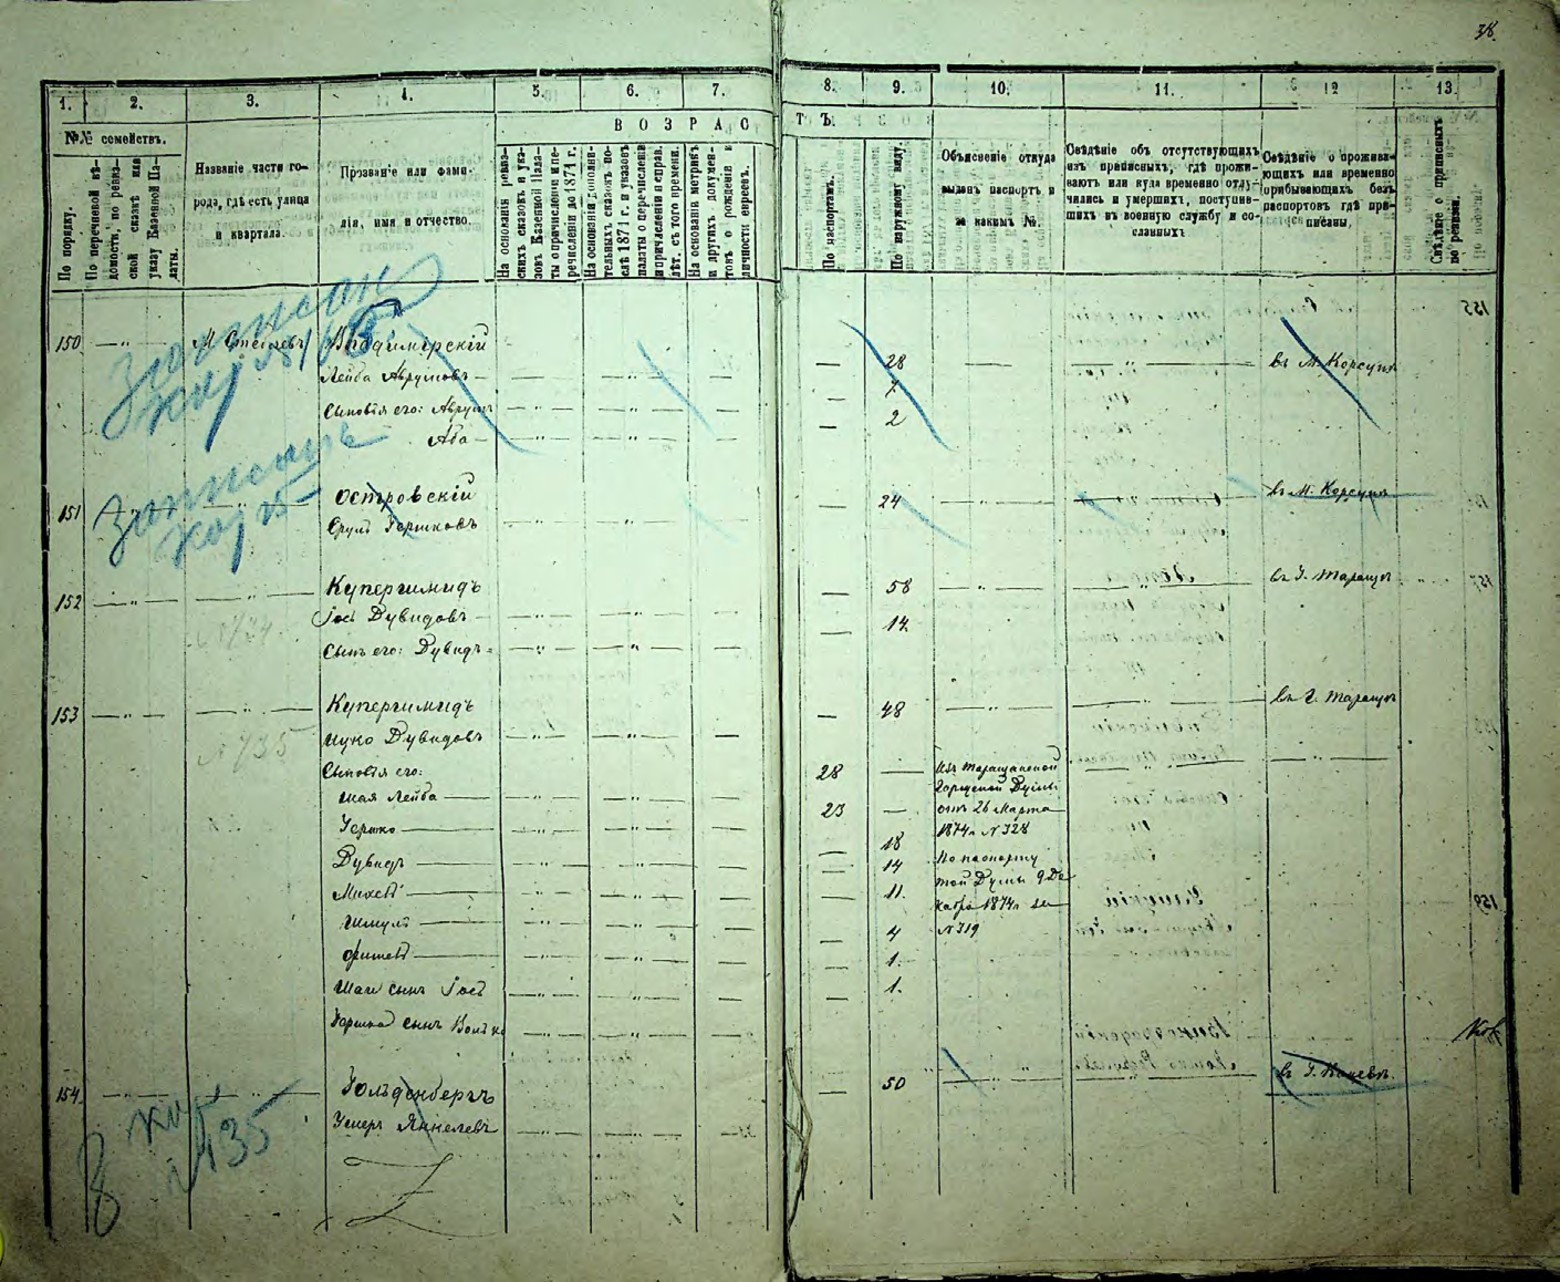 38.
1. 2. 3. 4. 5. 6. 7. 8. 9. 10. 11. 12 13.
№№ семействъ.
ВОЗРАСТЪ.
По порядку.
По перечневой вѣ-
домости, по ревиз-
ской сказкѣ или
указу Казенной Па-
латы.
Названіе части го-
рода, гдѣ есть улица
и квартала.
Прозваніе или фами-
лія, имя и отчество.
На основаніи ревиз-
скихъ сказокъ и ука-
зовъ Казенной Пала-
ты о причисленіи и пе-
речисленіи до 1871 г.
На основаніи дополни-
тельныхъ сказокъ по-
слѣ 1871 г. и указовъ
палаты о перечисленіи
и причисленіи и справ.
лѣт. съ того времени.
На основаніи метрикъ
и другихъ докумен-
товъ о рожденіи и
личности евреевъ.
По паспортамъ.
По наружному виду.
Объясненіе откуда
выданъ паспортъ и
за какимъ №.
Свѣдѣніе объ отсутствующихъ
изъ приписныхъ, гдѣ прожи-
ваютъ или куда временно отлу-
чились и умершихъ, поступив-
шихъ въ военную службу и со-
сланныхъ
Свѣдѣніе о прожива-
ющихъ или временно
прибывающихъ безъ
паспортовъ гдѣ при-
писаны.
Свѣдѣніе о приписныхъ
по ревизіи.
Записан
150 М. Стеблевъ Владимірскій
Лейба Аврумовъ 28 въ М. Корсунѣ
Сыновья его: Аврумъ 7
Аба 2
Записанъ
кор 25
151 Островскій 24 въ М. Корсунѣ
Срулъ Гершковъ
152 Купершмидъ 58 въ Г. Таращѣ
Іось Дувидовъ 14
Сынъ его: Дувидъ
153 Купершмидъ 48 въ Г. Таращѣ
№ 735
Ицко Дувидовъ
Сыновья его: 28 Изъ Таращанской
Городской Думы
Шая Лейба 23 отъ 26 Марта
Гершко 18 1874 г. № 328
Дувидъ 14 По паспорту
Михель 11. той Думы 9 Де-
кабря 1874 г. за
Шмуль 4 № 319
Фишель 1.
Шаи сынъ Іось 1.
Гершка сынъ Волько
154 Гольденбергъ 50 въ Г. Каневѣ
Ушеръ Янкелевъ
кор
№ 135